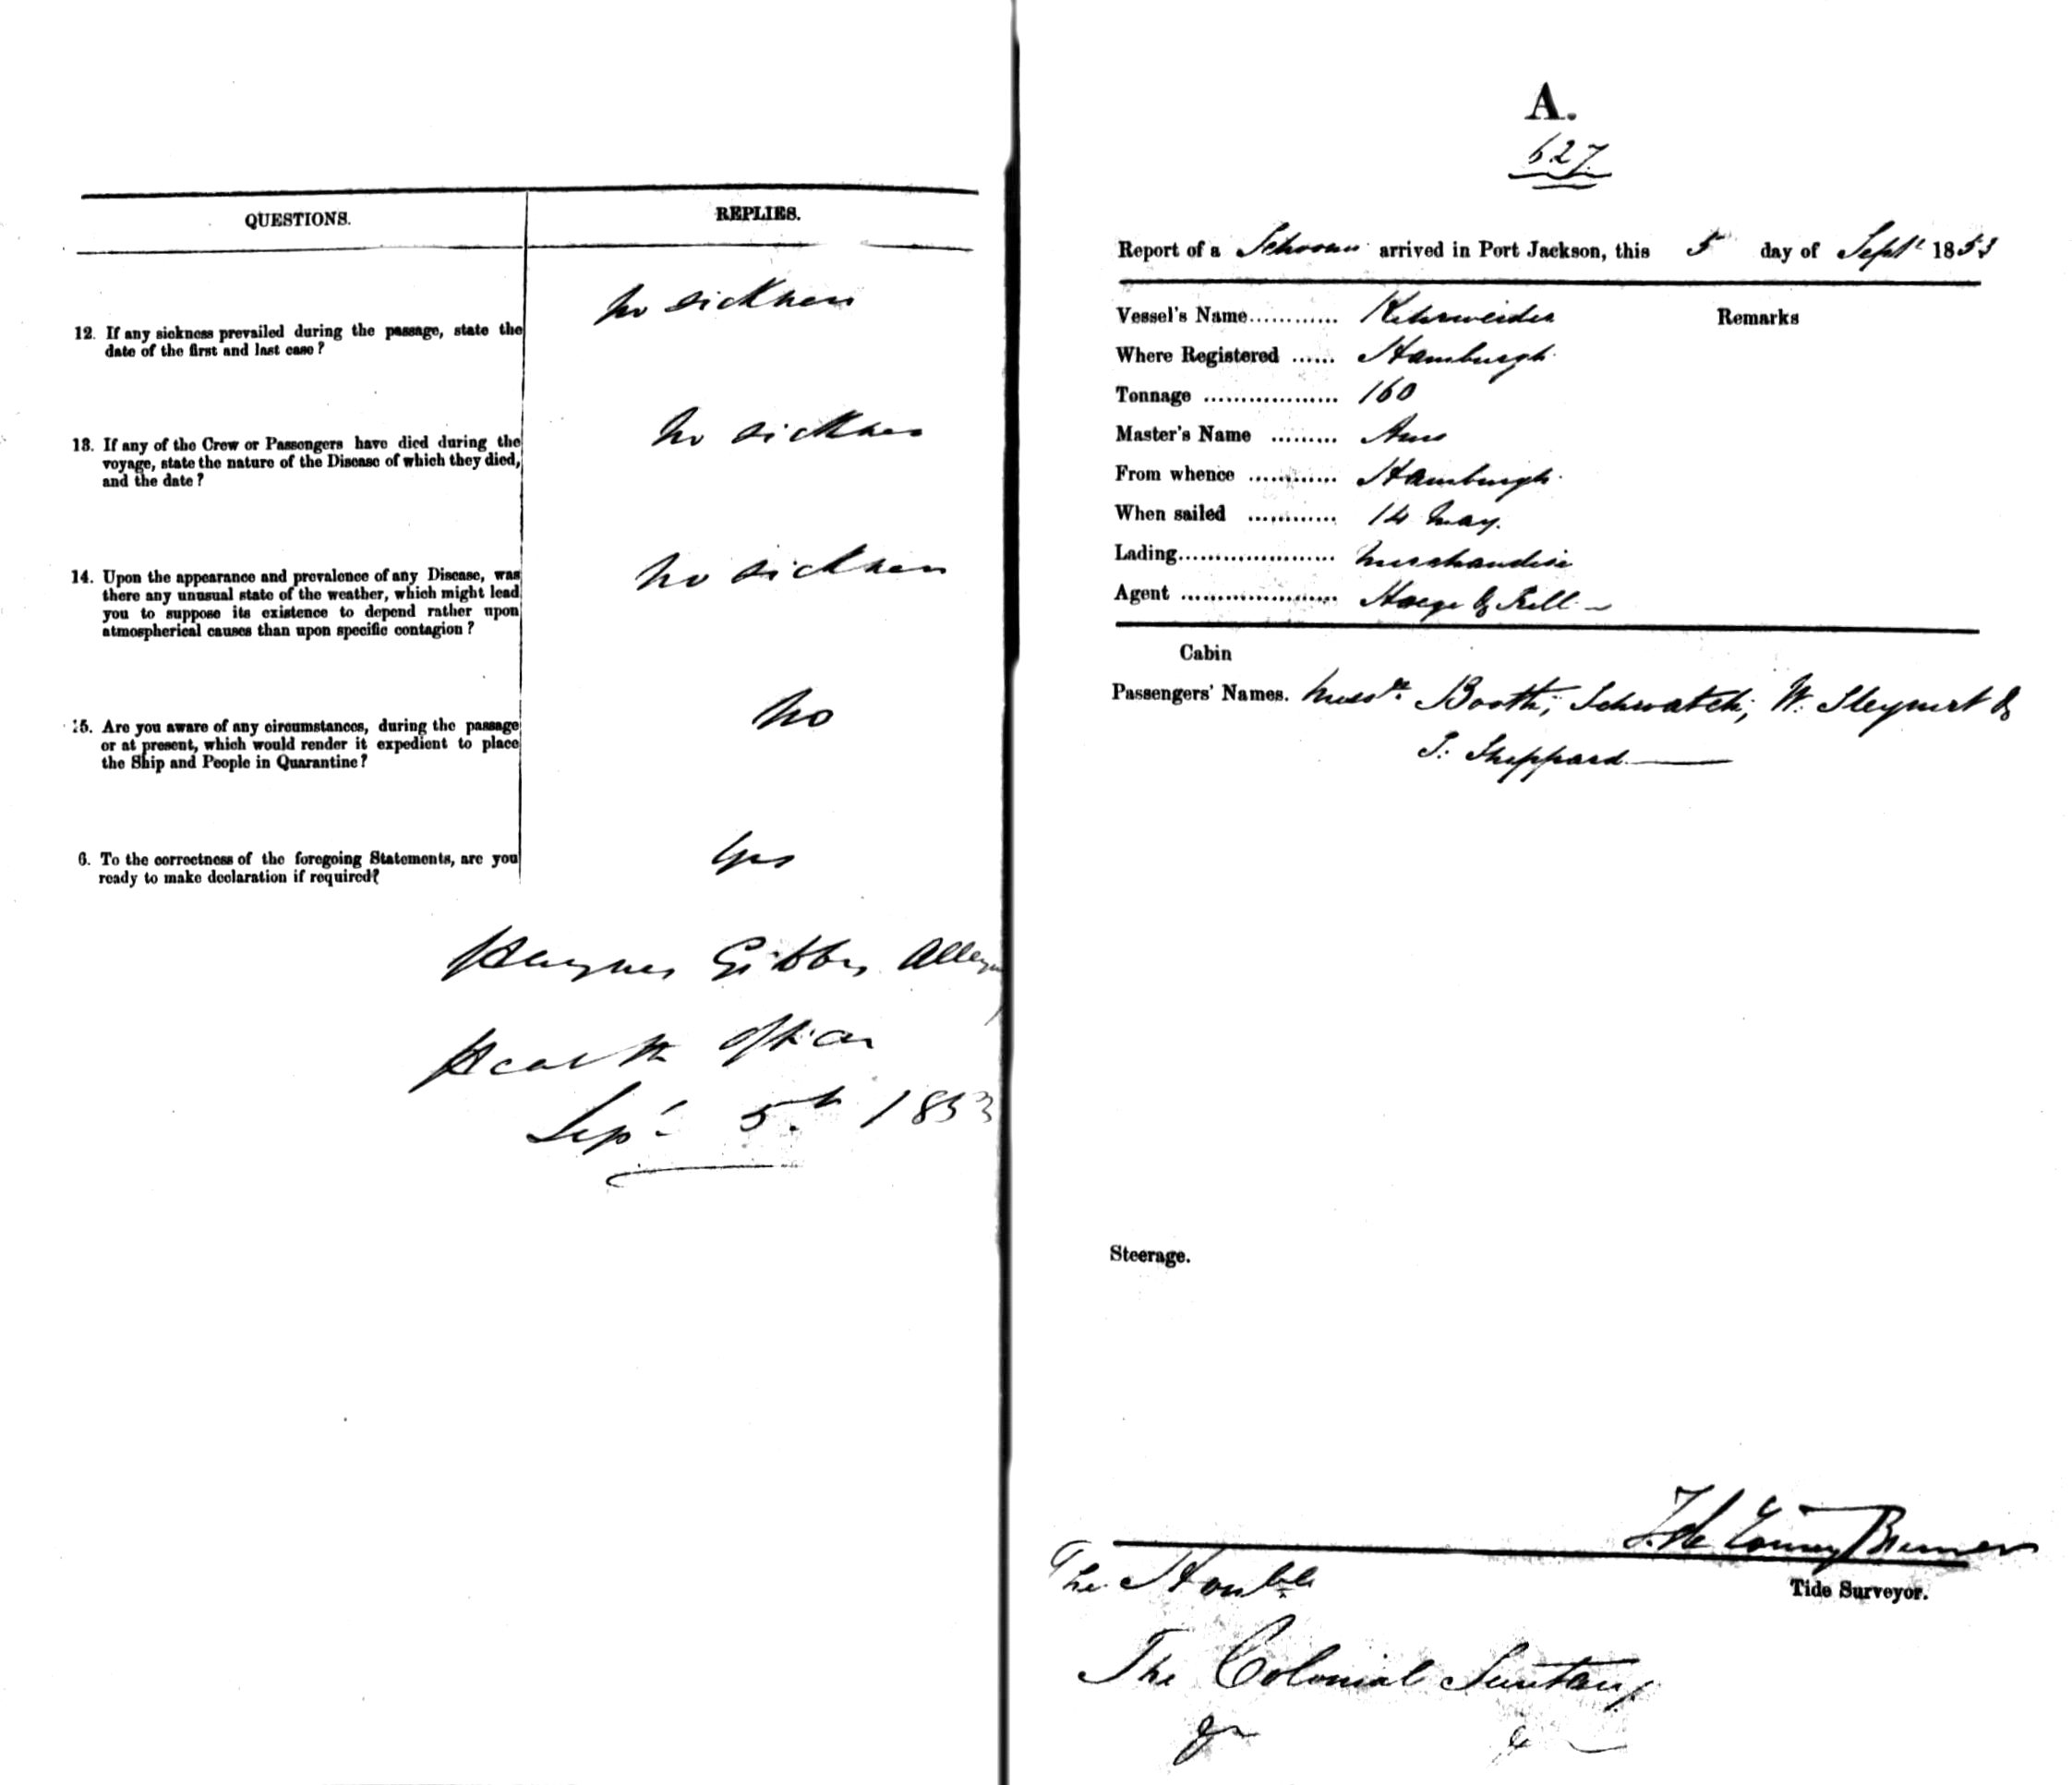 QUESTIONS.
REPLIES.
12. If any sickness prevailed during the passage, state the
date of the first and last case?
No sickness
13. If any of the Crew or Passengers have died during the
voyage, state the nature of the Disease of which they died,
and the date?
No sickness
14. Upon the appearance and prevalence of any Disease, was
there any unusual state of the weather, which might lead
you to suppose its existence to depend rather upon
atmospherical causes than upon specific contagion?
No sickness
15. Are you aware of any circumstances, during the passage
or at present, which would render it expedient to place
the Ship and People in Quarantine?
No
6. To the correctness of the foregoing Statements, are you
ready to make declaration if required?
Yes
Haynes Gibbes Alleyne
Health Officer
Sept 5th 1853
A.
627
Report of a Schooner arrived in Port Jackson, this 5 day of Sept 1853
Vessel's Name............ Kehrwieder
Remarks
Where Registered ...... Hamburgh
Tonnage .................. 160
Master's Name .........
From whence ............ Hamburgh
When sailed ............ 14 May.
Lading.................... Merchandise
Agent ....................
Cabin
Passengers' Names. Messrs Booth, Schwatch, W. &
Sheppard
Steerage.
Tide Surveyor.
The Honble
The Colonial Secretary